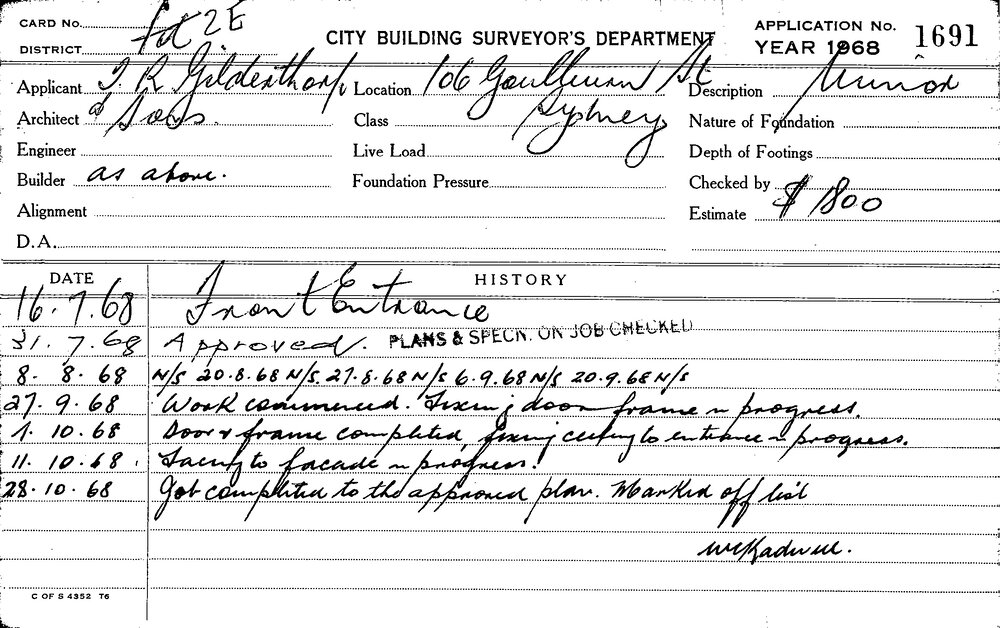 CARD No.
fd 2E
DISTRICT
CITY BUILDING SURVEYOR'S DEPARTMENT
APPLICATION No. 1691
YEAR 1968
Applicant T. R. Gildenthorp
Location 106 Goulburn St
Description Minor
Architect & Sons.
Class Sydney
Nature of Foundation
Engineer
Live Load
Depth of Footings
Builder as above.
Foundation Pressure
Checked by
Alignment
Estimate $ 1800
D.A.
DATE HISTORY
16.7.68 Front Entrance
31.7.68 Approved. PLANS & SPECN. ON JOB CHECKED
8.8.68 N/S 20.8.68 N/S. 27.8.68 N/S 6.9.68 N/S 20.9.68 N/S
27.9.68 Work commenced. Fixing door frame in progress.
1.10.68 Door & frame completed, fixing ceiling to entrance in progress.
11.10.68. Facing to facade in progress.
28.10.68 Job completed to the approved plan. Marked off list
C OF S 4352 T6